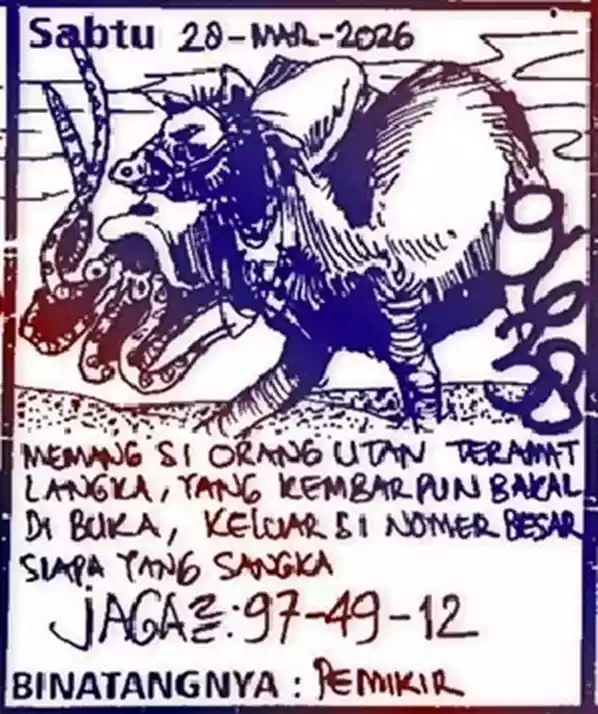 Sabtu 28-MAR-2026
MEMANG SI ORANG UTAN TERAMAT
LANGKA, YANG KEMBAR PUN BAKAL
DI BUKA, KELUAR SI NOMER BESAR
SIAPA YANG SANGKA
JAGA2:97-49-12
BINATANGNYA : PEMIKIR